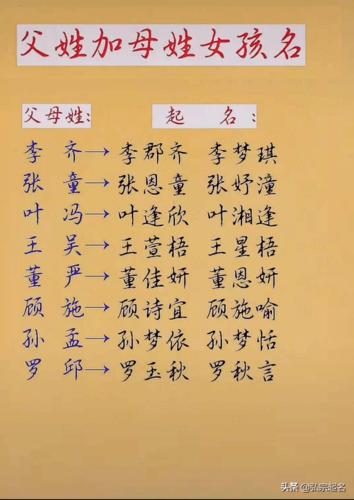 父姓加母姓女孩名
父母姓: 起名:
李 齐→李郡齐 李梦琪
张 童→张恩童 张妤潼
叶 冯→叶逢欣 叶湘逢
王 吴→王萱梧 王星梧
董 严→董佳妍 董恩妍
顾 施→顾诗宜 顾施喻
孙 孟→孙梦依 孙梦恬
罗 邱→罗玉秋 罗秋言
头条@弘宗起名